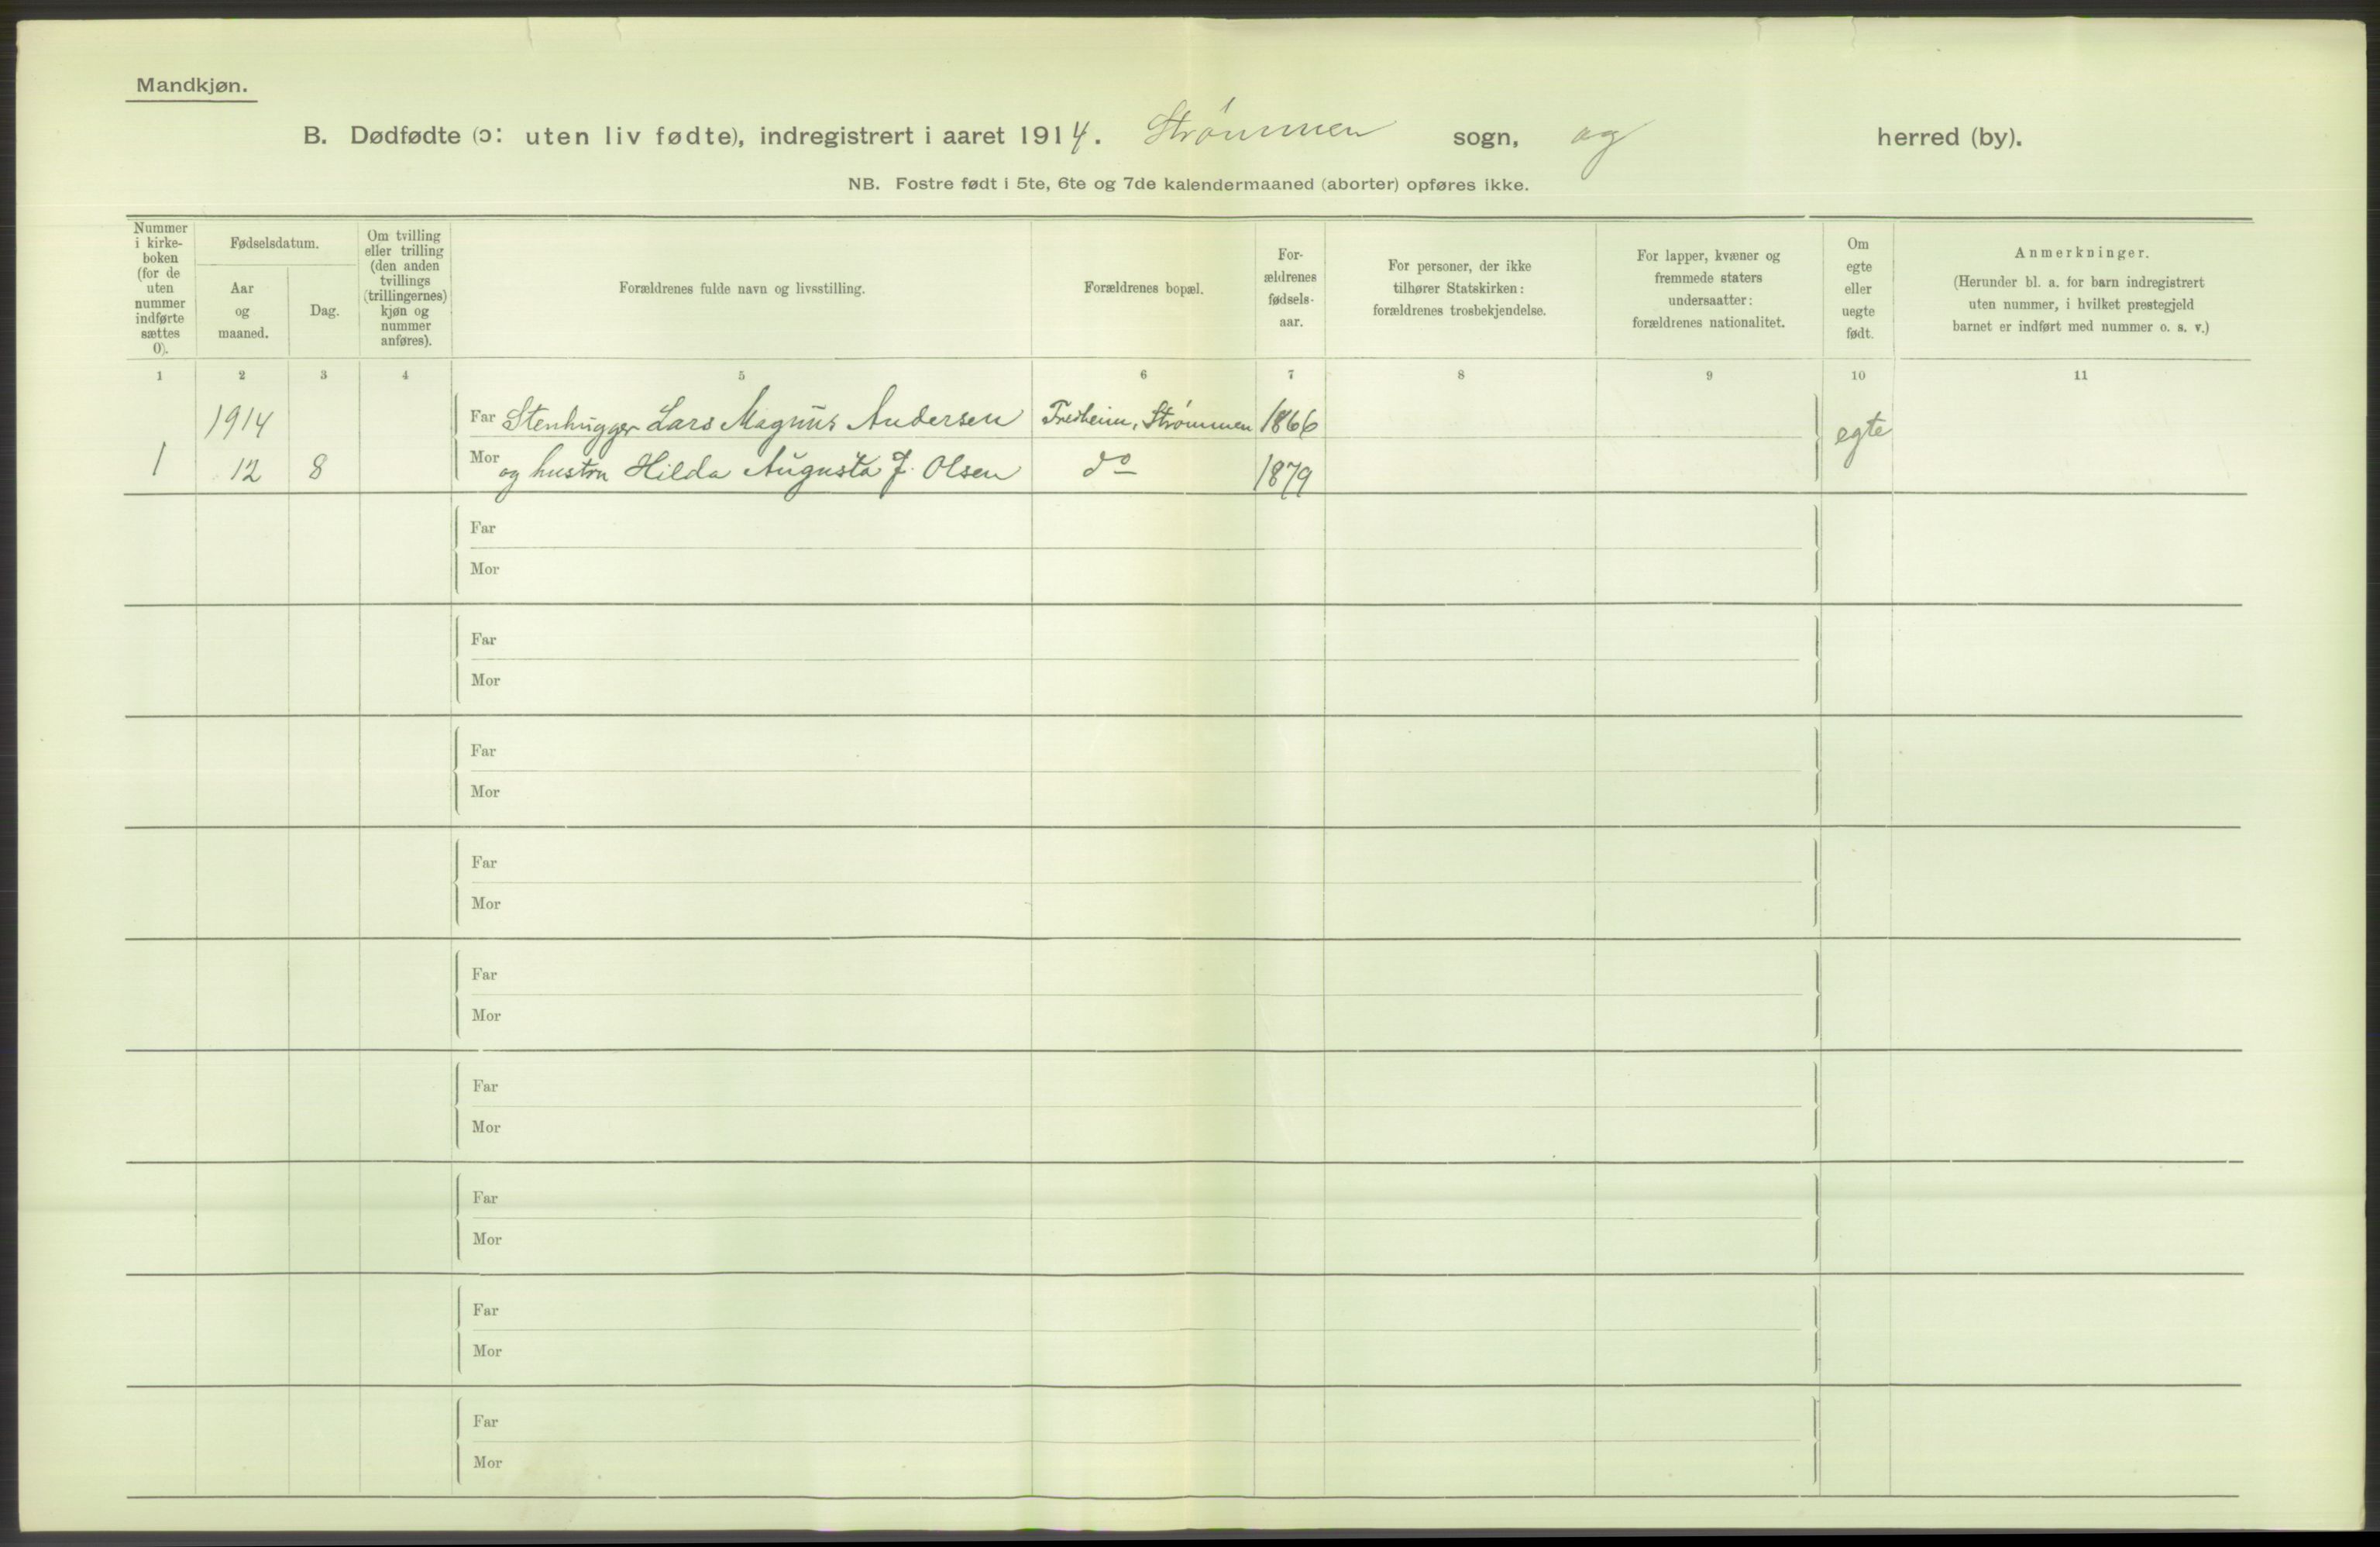 Mandkjøn.
B. Dødfødte (ɔ: uten liv fødte), indregistrert i aaret 1914. Strømmen sogn, og herred (by).
NB. Fostre født i 5te, 6te og 7de kalendermaaned (aborter) opføres ikke.
Nummer
i kirke-
boken
(for de
uten
nummer
indførte
sættes
0).
Fødselsdatum.
Aar
og
maaned.
Dag.
Om tvilling
eller trilling
(den anden
tvillings
(trillingernes)
kjøn og
nummer
anføres).
Forældrenes fulde navn og livsstilling.
Forældrenes bopæl.
For-
ældrenes
fødsels-
aar.
For personer, der ikke
tilhører Statskirken:
forældrenes trosbekjendelse.
For lapper, kvæner og
fremmede staters
undersaatter:
forældrenes nationalitet.
Om
egte
eller
uegte
født.
Anmerkninger.
(Herunder bl. a. for barn indregistrert
uten nummer, i hvilket prestegjeld
barnet er indført med nummer o. s. v.)
1 2 3 4 5 6 7 8 9 10 11
1914 Far Stenhugger Lars Magnus Andersen Fredheim, Strømmen 1866 egte
1 12 8 Mor og hustru Hilda Augusta J. Olsen do 1879
Far
Mor
Far
Mor
Far
Mor
Far
Mor
Far
Mor
Far
Mor
Far
Mor
Far
Mor
Far
Mor